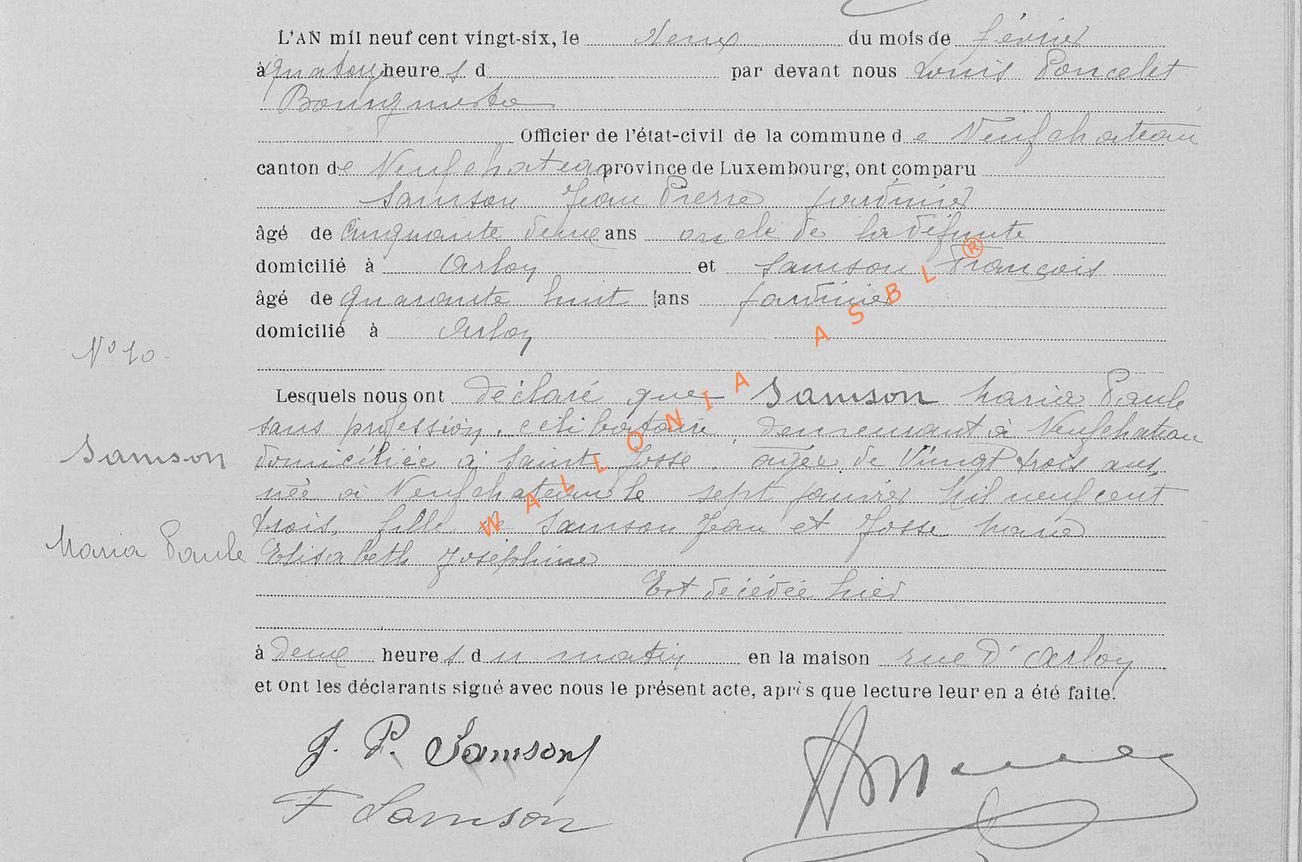 L'AN mil neuf cent vingt-six, le deux du mois de février
à quatorze heures d par devant nous Louis Poncelet
Bourgmestre
Officier de l'état-civil de la commune de Neufchateau
canton de Neufchateau province de Luxembourg, ont comparu
Samson Jean Pierre jardinier
âgé de Cinquante deux ans oncle de la défunte
domicilié à Arlon et Samson François
âgé de quarante huit ans jardinier
domicilié à Arlon
N° 10
Lesquels nous ont déclaré que Samson Maria Paule
sans profession, célibataire, demeurant à Neufchateau
Samson
domiciliée à Saint Josse, agée de Vingt trois ans,
née à Neufchateau le sept janvier Mil neuf cent
trois, fille de Samson Jean et Josse Maria
Maria Paule
Elisabeth Joséphine
Est décédée hier
à deux heures du matin en la maison rue d'Arlon
et ont les déclarants signé avec nous le présent acte, après que lecture leur en a été faite.
J. P. Samson
F Samson
WALLONIA ASBL ®